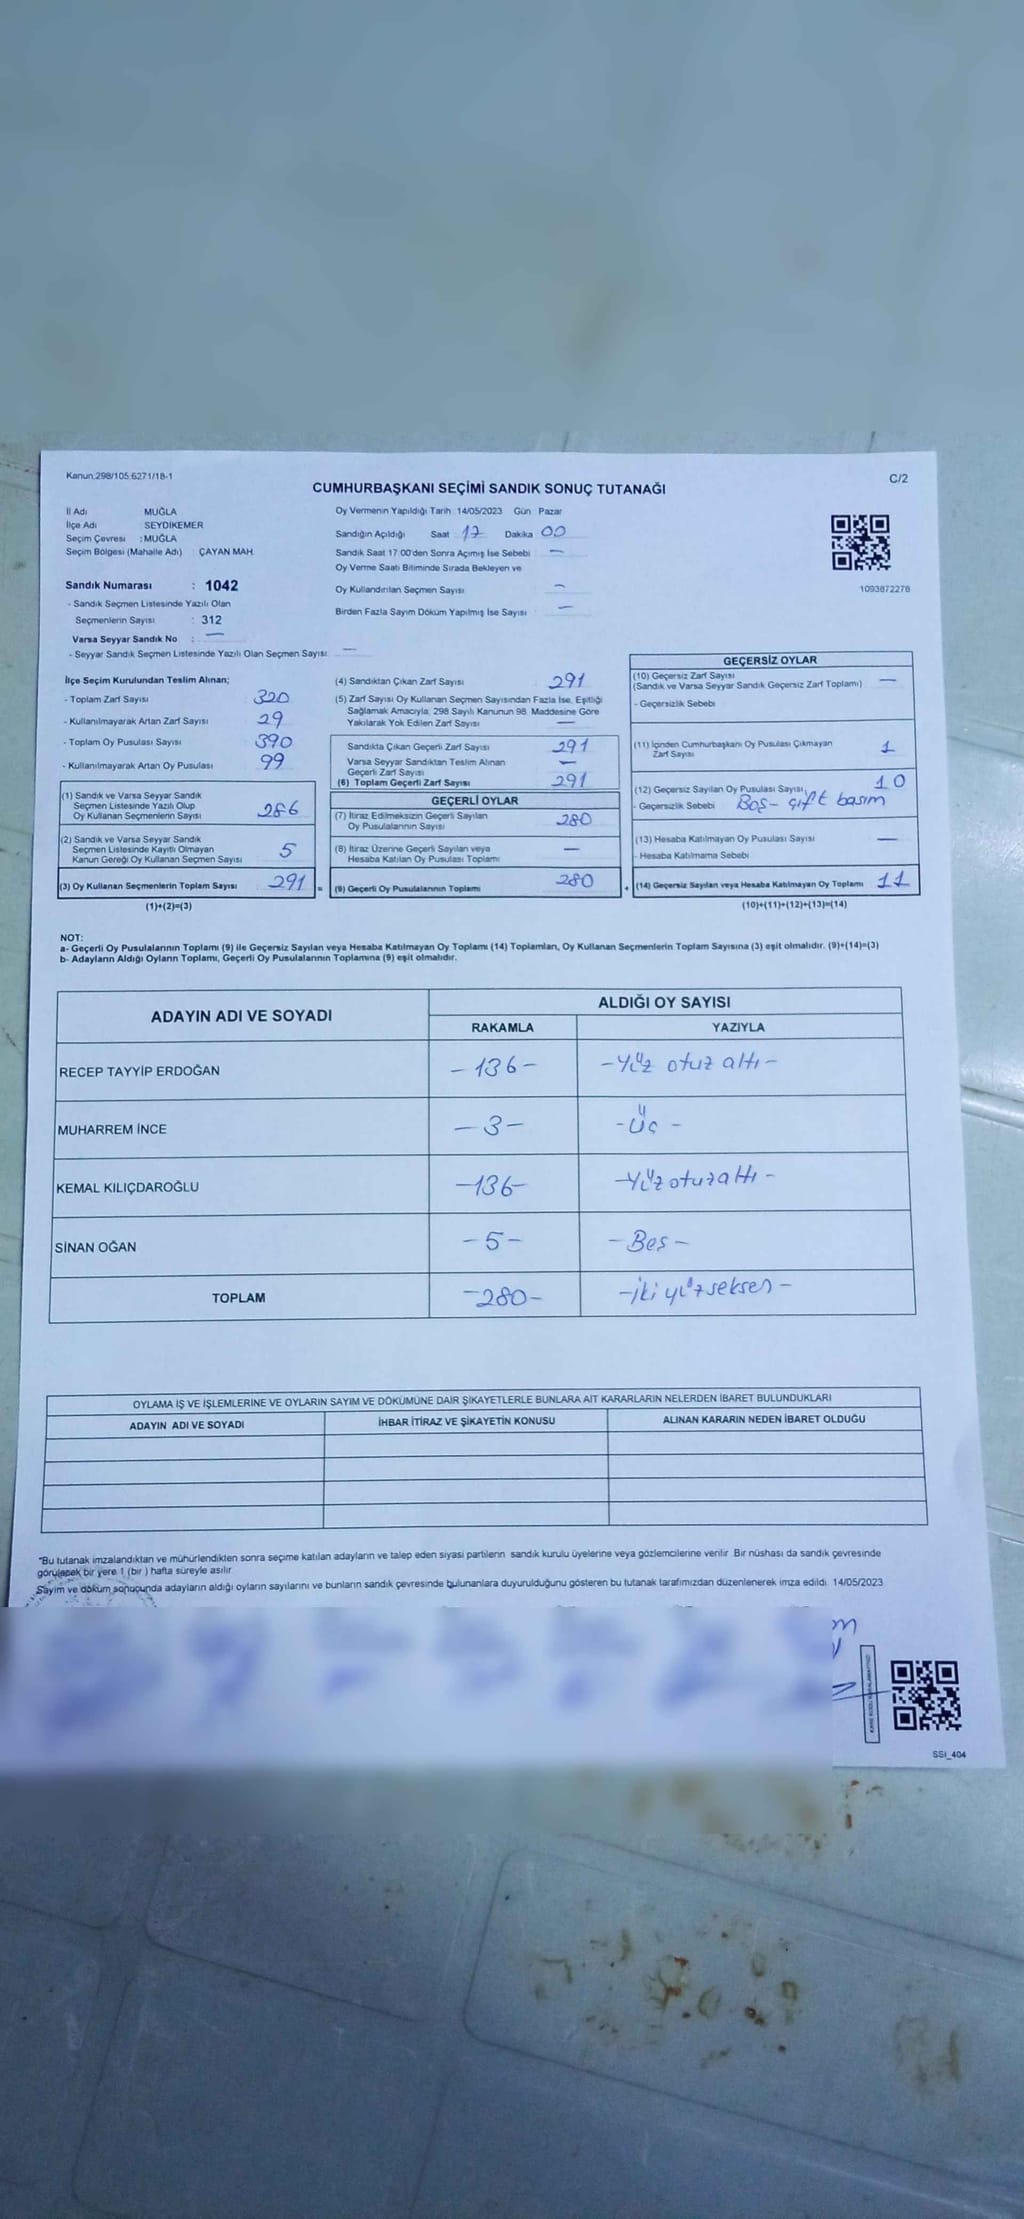 Kanun:298/105 6271/18-1
C/2
CUMHURBAŞKANI SEÇİMİ SANDIK SONUÇ TUTANAĞI
İl Adı MUĞLA
İlçe Adı SEYDİKEMER
Seçim Çevresi : MUĞLA
Seçim Bölgesi (Mahalle Adı) : ÇAYAN MAH.
Sandık Numarası : 1042
- Sandık Seçmen Listesinde Yazılı Olan
Seçmenlerin Sayısı : 312
Varsa Seyyar Sandık No : —
- Seyyar Sandık Seçmen Listesinde Yazılı Olan Seçmen Sayısı: —
Oy Vermenin Yapıldığı Tarih 14/05/2023 Gün Pazar
Sandığın Açıldığı Saat 17 Dakika 00
Sandık Saat 17.00'den Sonra Açımış İse Sebebi —
Oy Verme Saati Bitiminde Sırada Bekleyen ve
Oy Kullandırılan Seçmen Sayısı —
Birden Fazla Sayım Döküm Yapılmış İse Sayısı —
1093872276
İlçe Seçim Kurulundan Teslim Alınan;
- Toplam Zarf Sayısı 320
- Kullanılmayarak Artan Zarf Sayısı 29
- Toplam Oy Pusulası Sayısı 390
- Kullanılmayarak Artan Oy Pusulası 99
(1) Sandık ve Varsa Seyyar Sandık
Seçmen Listesinde Yazılı Olup
Oy Kullanan Seçmenlerin Sayısı 286
(2) Sandık ve Varsa Seyyar Sandık
Seçmen Listesinde Kayıtlı Olmayan
Kanun Gereği Oy Kullanan Seçmen Sayısı 5
(3) Oy Kullanan Seçmenlerin Toplam Sayısı 291 =
(1)+(2)=(3)
(4) Sandıktan Çıkan Zarf Sayısı 291
(5) Zarf Sayısı Oy Kullanan Seçmen Sayısından Fazla İse, Eşitliği
Sağlamak Amacıyla, 298 Sayılı Kanunun 98. Maddesine Göre
Yakılarak Yok Edilen Zarf Sayısı —
Sandıkta Çıkan Geçerli Zarf Sayısı 291
Varsa Seyyar Sandıktan Teslim Alınan
Geçerli Zarf Sayısı —
(6) Toplam Geçerli Zarf Sayısı 291
GEÇERLİ OYLAR
(7) İtiraz Edilmeksizin Geçerli Sayılan
Oy Pusulalarının Sayısı 280
(8) İtiraz Üzerine Geçerli Sayılan veya
Hesaba Katılan Oy Pusulası Toplamı —
(9) Geçerli Oy Pusulalarının Toplamı 280 +
GEÇERSİZ OYLAR
(10) Geçersiz Zarf Sayısı
(Sandık ve Varsa Seyyar Sandık Geçersiz Zarf Toplamı) —
- Geçersizlik Sebebi
(11) İçinden Cumhurbaşkanı Oy Pusulası Çıkmayan
Zarf Sayısı 1
(12) Geçersiz Sayılan Oy Pusulası Sayısı 10
- Geçersizlik Sebebi Boş- çift basım
(13) Hesaba Katılmayan Oy Pusulası Sayısı —
- Hesaba Katılmama Sebebi
(14) Geçersiz Sayılan veya Hesaba Katılmayan Oy Toplamı 11
(10)+(11)+(12)+(13)=(14)
NOT:
a- Geçerli Oy Pusulalarının Toplamı (9) ile Geçersiz Sayılan veya Hesaba Katılmayan Oy Toplamı (14) Toplamları, Oy Kullanan Seçmenlerin Toplam Sayısına (3) eşit olmalıdır. (9)+(14)=(3)
b- Adayların Aldığı Oyların Toplamı, Geçerli Oy Pusulalarının Toplamına (9) eşit olmalıdır.
ADAYIN ADI VE SOYADI ALDIĞI OY SAYISI
RAKAMLA YAZIYLA
RECEP TAYYİP ERDOĞAN -136- -Yüz otuz altı-
MUHARREM İNCE -3- -Üç-
KEMAL KILIÇDAROĞLU -136- -Yüzotuzaltı-
SİNAN OĞAN -5- -Beş-
TOPLAM -280- -İki yüzseksen-
OYLAMA İŞ VE İŞLEMLERİNE VE OYLARIN SAYIM VE DÖKÜMÜNE DAİR ŞİKAYETLERLE BUNLARA AİT KARARLARIN NELERDEN İBARET BULUNDUKLARI
ADAYIN ADI VE SOYADI İHBAR İTİRAZ VE ŞİKAYETİN KONUSU ALINAN KARARIN NEDEN İBARET OLDUĞU
"Bu tutanak imzalandıktan ve mühürlendikten sonra seçime katılan adayların ve talep eden siyasi partilerin sandık kurulu üyelerine veya gözlemcilerine verilir. Bir nüshası da sandık çevresinde
görülecek bir yere 1 (bir) hafta süreyle asılır.
Sayım ve döküm sonucunda adayların aldığı oyların sayılarını ve bunların sandık çevresinde bulunanlara duyurulduğunu gösteren bu tutanak tarafımızdan düzenlenerek imza edildi. 14/05/2023
SSI_404